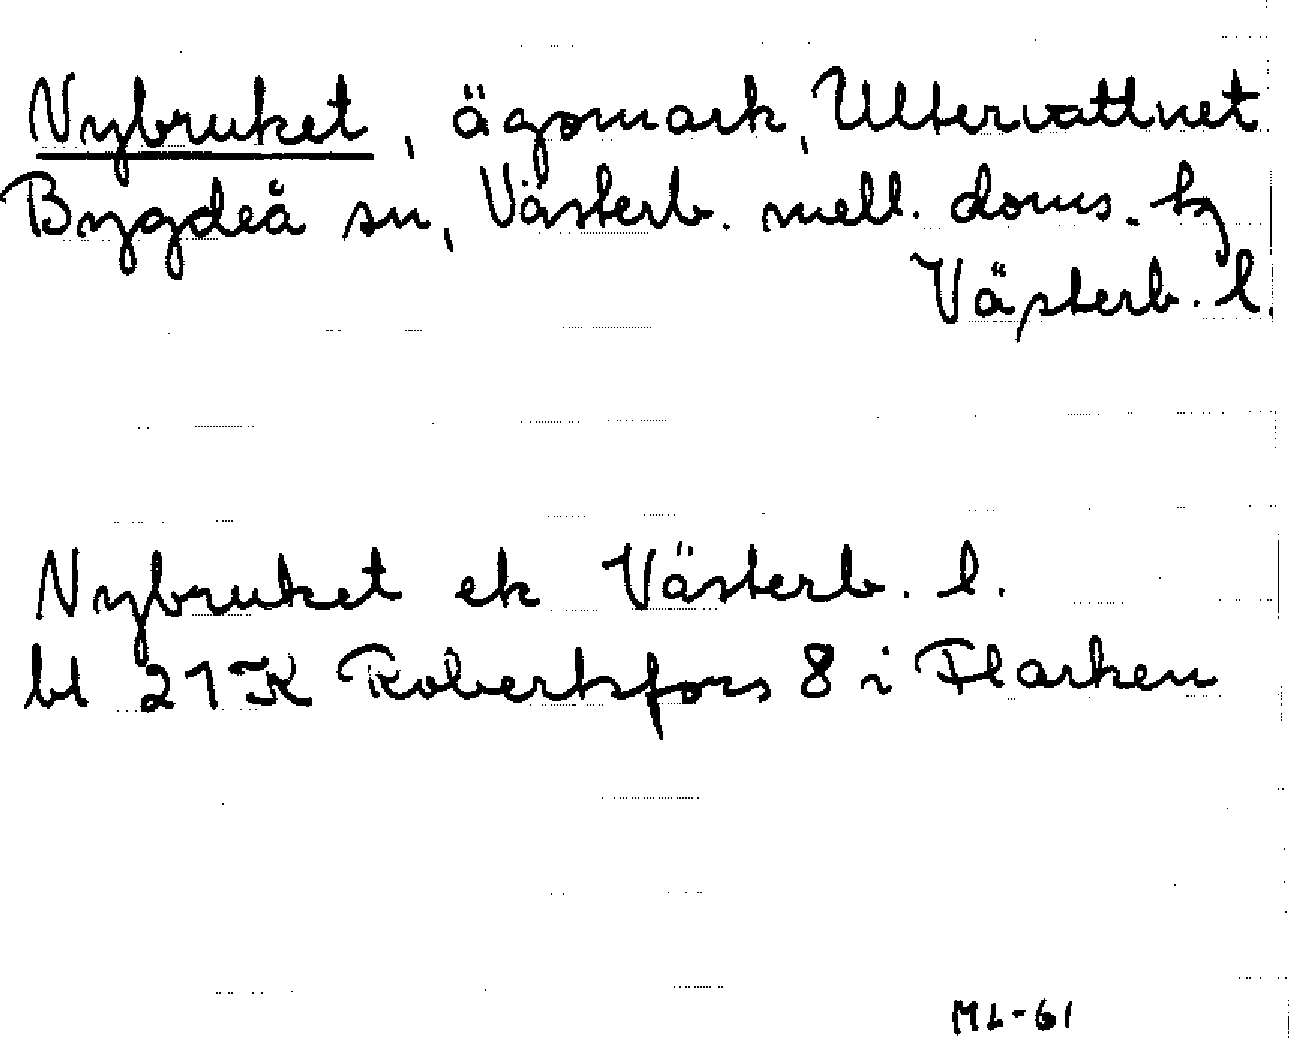 Nybruket, ägomark, Ultervattnet
Bygdeå sn, Västerb. mell. doms. tg
Västerb. l.
Nybruket ek Västerb. l.
bl 21K Robertsfors 8 i Flarken
ML-61